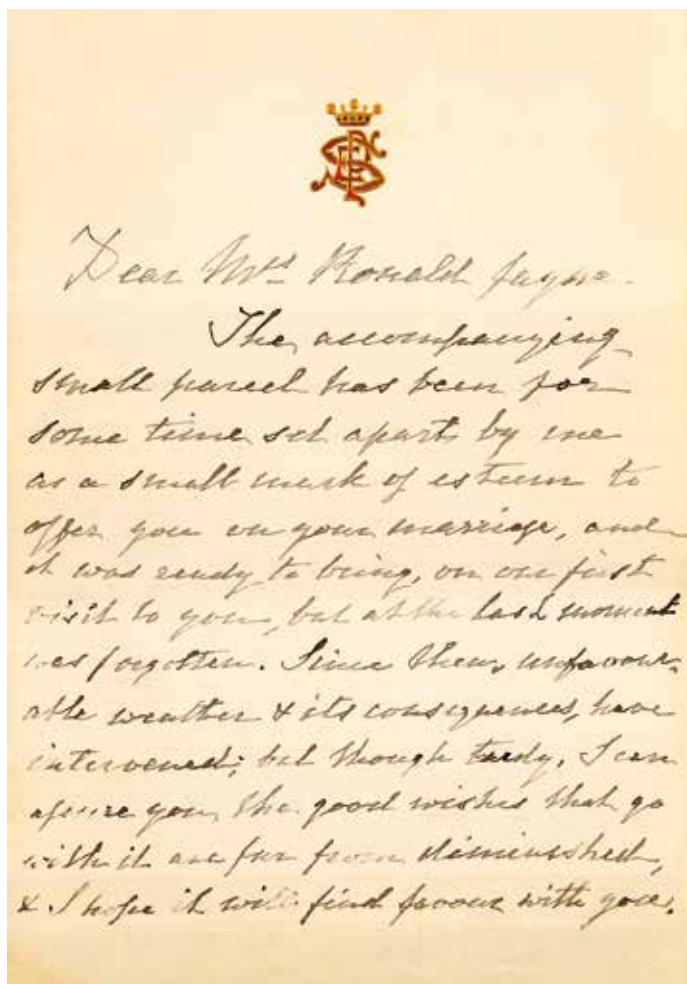 Dear Mrs Ronald Jayne.
The accompanying
small parcel has been for
some time set apart by me
as a small mark of esteem to
offer you on your marriage, and
it was ready to bring, on our first
visit to you, but at the last moment
was forgotten. Since then, unfavour-
able weather & its consequences, have
intervened; but though tardy, I can
assure you, the good wishes that go
with it are far from diminished,
& I hope it will find favour with you.